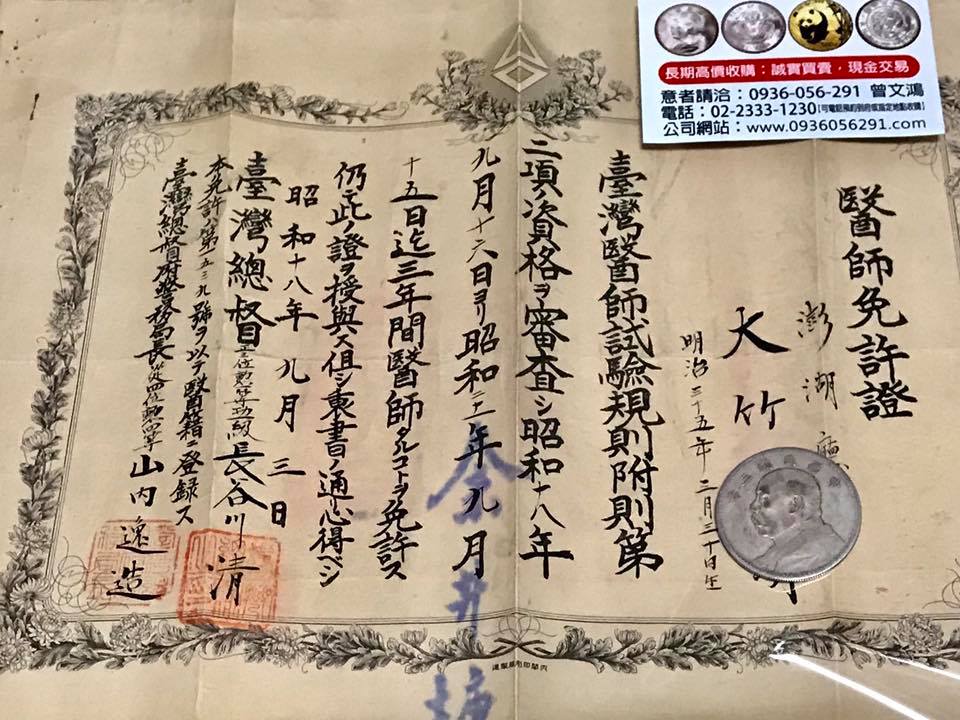 長期高價收購：誠實買賣，現金交易
意者請洽：0936-056-291 曾文鴻
電話：02-2333-1230【可電話預約到府或指定地點收購】
公司網站：www.0936056291.com
醫師免許證
澎湖廳
大竹
明治三十五年三月三十日生
臺灣醫師試驗規則附則第
二項ノ資格ヲ審査シ昭和十八年
九月十六日ヨリ昭和二十一年九月
十五日迄三年間醫師タルコトヲ免許ス
仍テ此ノ證ヲ授與ス但シ裏書ノ通心得ベシ
昭和十八年九月三日
臺灣總督 長谷川清
本免許ハ第五三九號ヲ以テ醫籍ニ登録ス
臺灣總督府警務局長從四位勲四等山内逸造
内閣印刷局製造